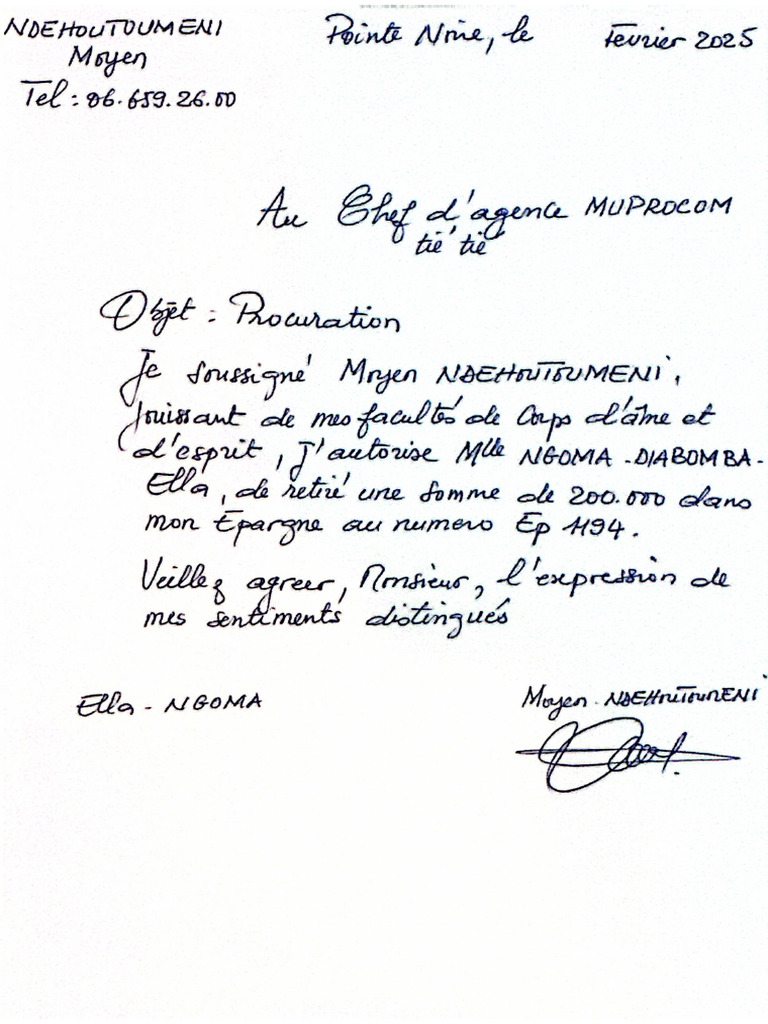 NDEHOUTOUMENI
Moyen
Tel : 06.659.26.00
Pointe Noire, le Fevrier 2025
Au Chef d'agence MUPROCOM
tié tié
Objet : Procuration
Je soussigné Moyen NDEHOUTOUMENI,
jouissant de mes facultés de Corps d'âme et
d'esprit, j'autorise Mlle NGOMA-DIABOMBA-
Ella, de retiré une somme de 200.000 dans
mon Epargne au numero Ep 1194.
Veillez agreer, Monsieur, l'expression de
mes sentiments distingués
Ella - NGOMA
Moyen-NDEHOUTOUMENI